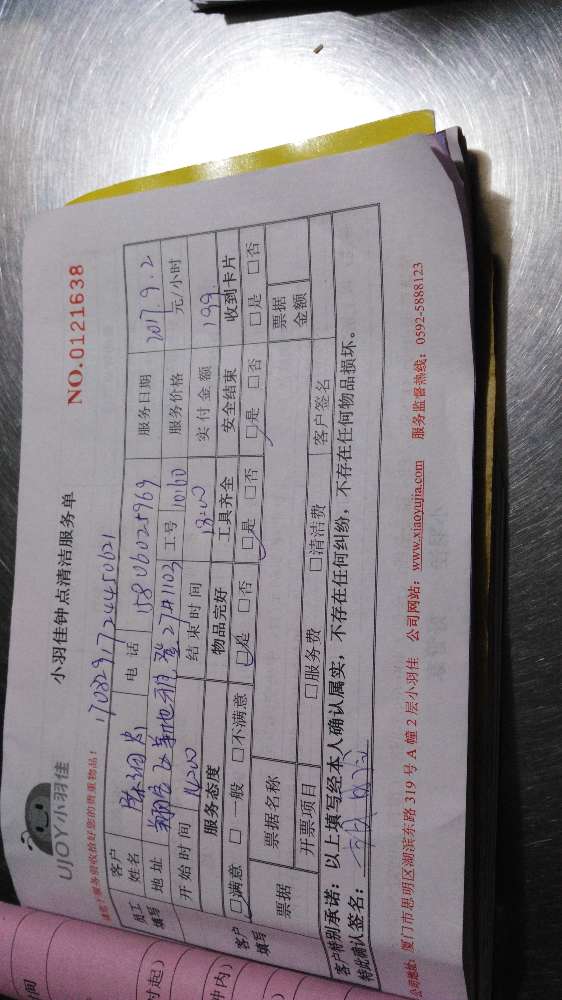 UJOY小羽佳
小羽佳钟点清洁服务单
NO.0121638
请在服务前收拾好您的贵重物品！
1708291724450621
员工填写
客户姓名
电话
15806025969
服务日期
2017.9.2
地址
27#1103
工号
10160
服务价格
元/小时
开始时间
14:00
结束时间
18:00
实付金额
199
客户填写
服务态度
物品完好
工具齐全
安全结束
收到卡片
□满意 □一般 □不满意
□是 □否
□是 □否
□是 □否
□是 □否
票据
票据名称
票据金额
开票项目
□服务费
□清洁费
客户签名
客户特别承诺：以上填写经本人确认属实，不存在任何纠纷，不存在任何物品损坏。
特此确认签名：
公司地址：厦门市思明区湖滨东路 319 号 A 幢 2 层小羽佳 公司网站：www.xiaoyujia.com 服务监督热线：0592-5888123
时起）
钟内）